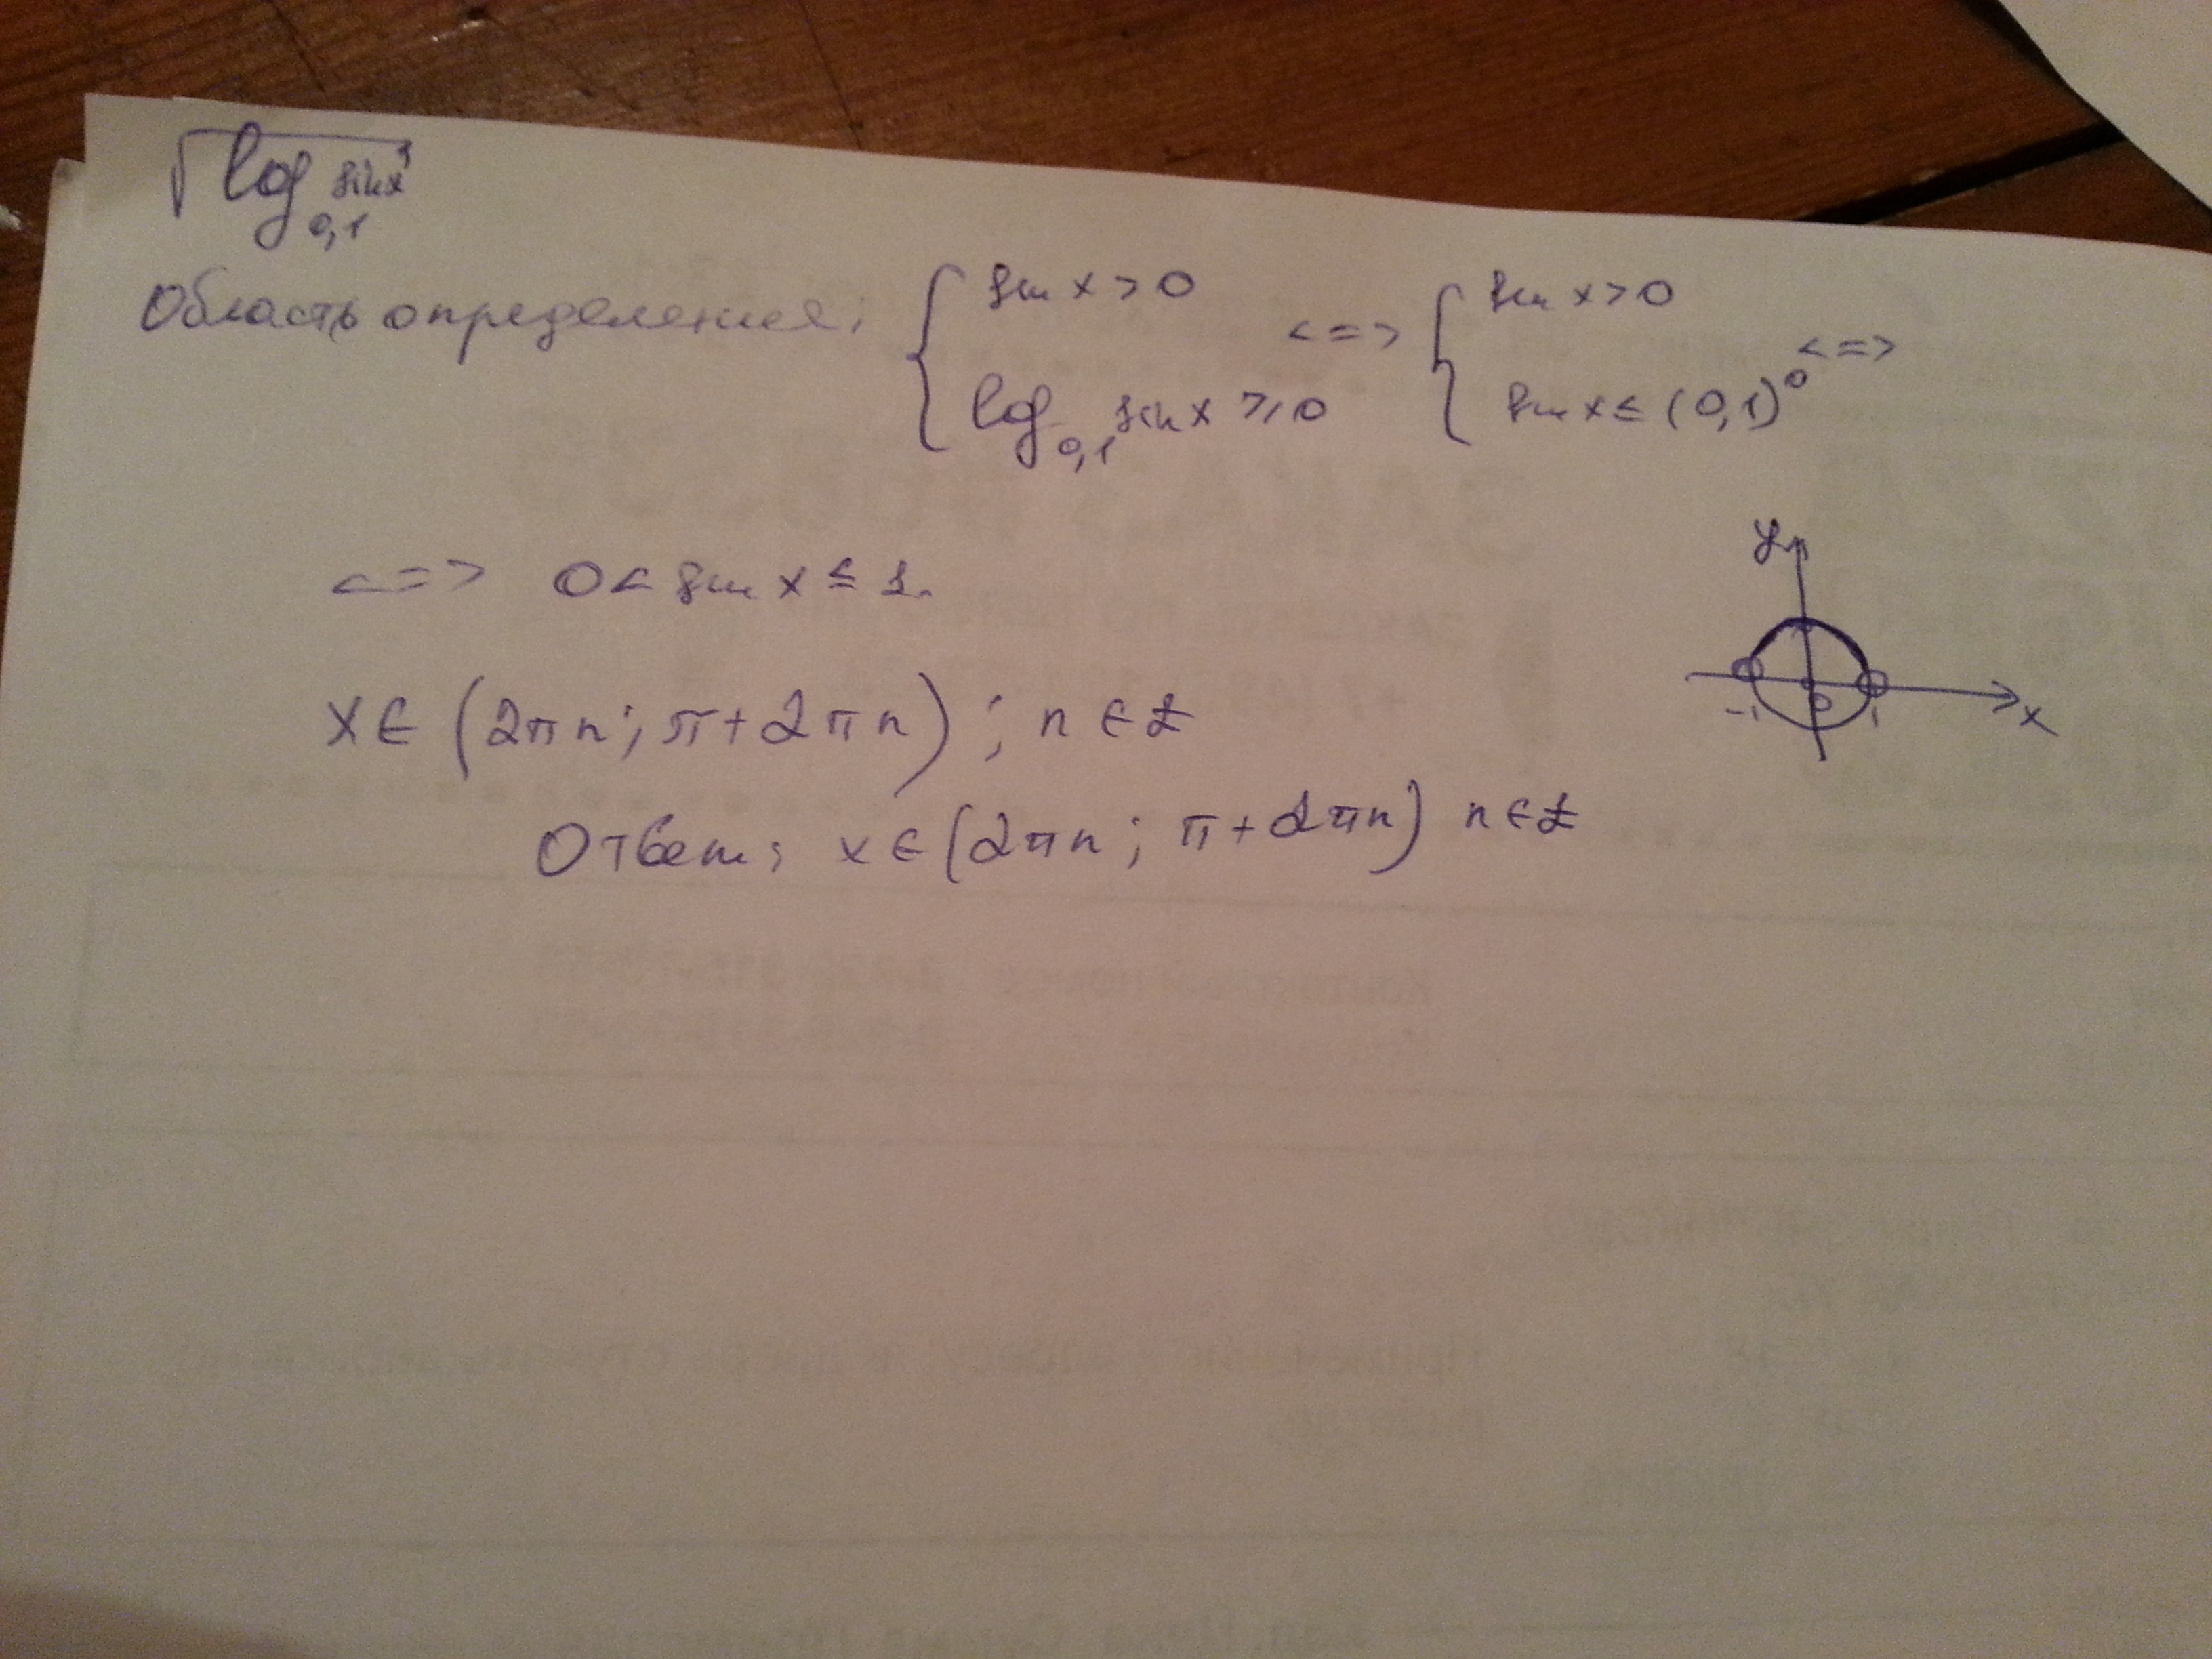 √log₀,₁ sin x
Область определения: { sin x > 0 <=> { sin x > 0 <=>
log₀,₁ sin x ⩾ 0 sin x ≤ (0,1)⁰
<=> 0 < sin x ≤ 1.
y
-1 0 1 x
x ∈ (2πn; π+2πn); n ∈ Z
Ответ: x ∈ (2πn; π+2πn) n ∈ Z